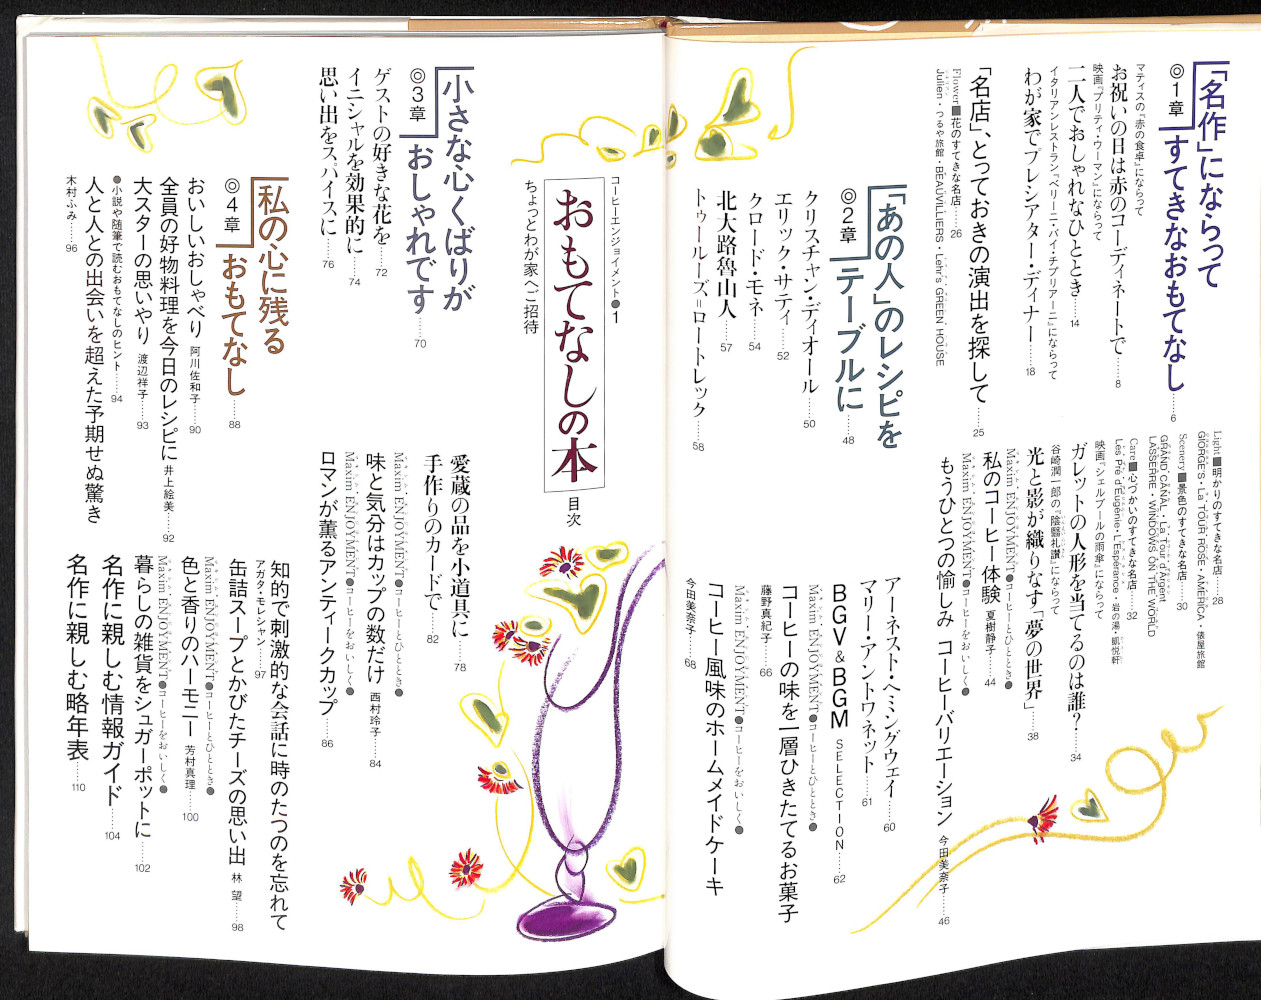 コーヒーエンジョイメント●1
おもてなしの本
目次
ちょっとわが家へご招待
◎1章
「名作」にならって
すてきなおもてなし……6
マティスの『赤の食卓』にならって
お祝いの日は赤のコーディネートで……8
映画『プリティ・ウーマン』にならって
二人でおしゃれなひととき……14
イタリアンレストラン『ベリーニ・バイ・チプリアーニ』にならって
わが家でプレシアター・ディナー……18
「名店」、とっておきの演出を探して……25
Flower■花のすてきな名店……26
Julien・つるや旅館・BEAUVILLIERS・Lehr's GREEN HOUSE
Light■明かりのすてきな名店……28
GIORGE'S・La TOUR ROSE・AMERICA・俵屋旅館
Scenery■景色のすてきな名店……30
GRAND CANAL・La Tour d'Argent
LASSERRE・WINDOWS ON THE WORLD
Care■心づかいのすてきな名店……32
Les Pré d'Eugénie・L'Espérance・岩の湯・凱悦軒
映画『シェルブールの雨傘』にならって
ガレットの人形を当てるのは誰?……34
谷崎潤一郎の『陰翳礼讃』にならって
光と影が織りなす「夢の世界」……38
Maxim ENJOYMENT●コーヒーとひととき●
私のコーヒー体験 夏樹静子……44
Maxim ENJOYMENT●コーヒーをおいしく●
もうひとつの愉しみ コーヒーバリエーション 今田美奈子……46
◎2章
「あの人」のレシピを
テーブルに……48
クリスチャン・ディオール……50
エリック・サティ……52
クロード・モネ……54
北大路魯山人……57
トゥールーズ＝ロートレック……58
アーネスト・ヘミングウェイ……60
マリー・アントワネット……61
BGV&BGM SELECTION……62
Maxim ENJOYMENT●コーヒーとひととき●
コーヒーの味を一層ひきたてるお菓子
藤野真紀子……66
Maxim ENJOYMENT●コーヒーをおいしく●
コーヒー風味のホームメイドケーキ
今田美奈子……68
◎3章
小さな心くばりが
おしゃれです……70
ゲストの好きな花を……72
イニシャルを効果的に……74
思い出をスパイスに……76
愛蔵の品を小道具に……78
手作りのカードで……82
Maxim ENJOYMENT●コーヒーとひととき●
味と気分はカップの数だけ 西村玲子……84
Maxim ENJOYMENT●コーヒーをおいしく●
ロマンが薫るアンティークカップ……86
◎4章
私の心に残る
おもてなし……88
おいしいおしゃべり 阿川佐和子……90
全員の好物料理を今日のレシピに 井上絵美……92
大スターの思いやり 渡辺祥子……93
●小説や随筆で読むおもてなしのヒント……94
人と人との出会いを超えた予期せぬ驚き
木村ふみ……96
知的で刺激的な会話に時のたつのを忘れて
アガタ・モレシャン……97
缶詰スープとかびたチーズの思い出 林 望……98
Maxim ENJOYMENT●コーヒーとひととき●
色と香りのハーモニー 芳村真理……100
Maxim ENJOYMENT●コーヒーをおいしく●
暮らしの雑貨をシュガーポットに……102
名作に親しむ情報ガイド……104
名作に親しむ略年表……110